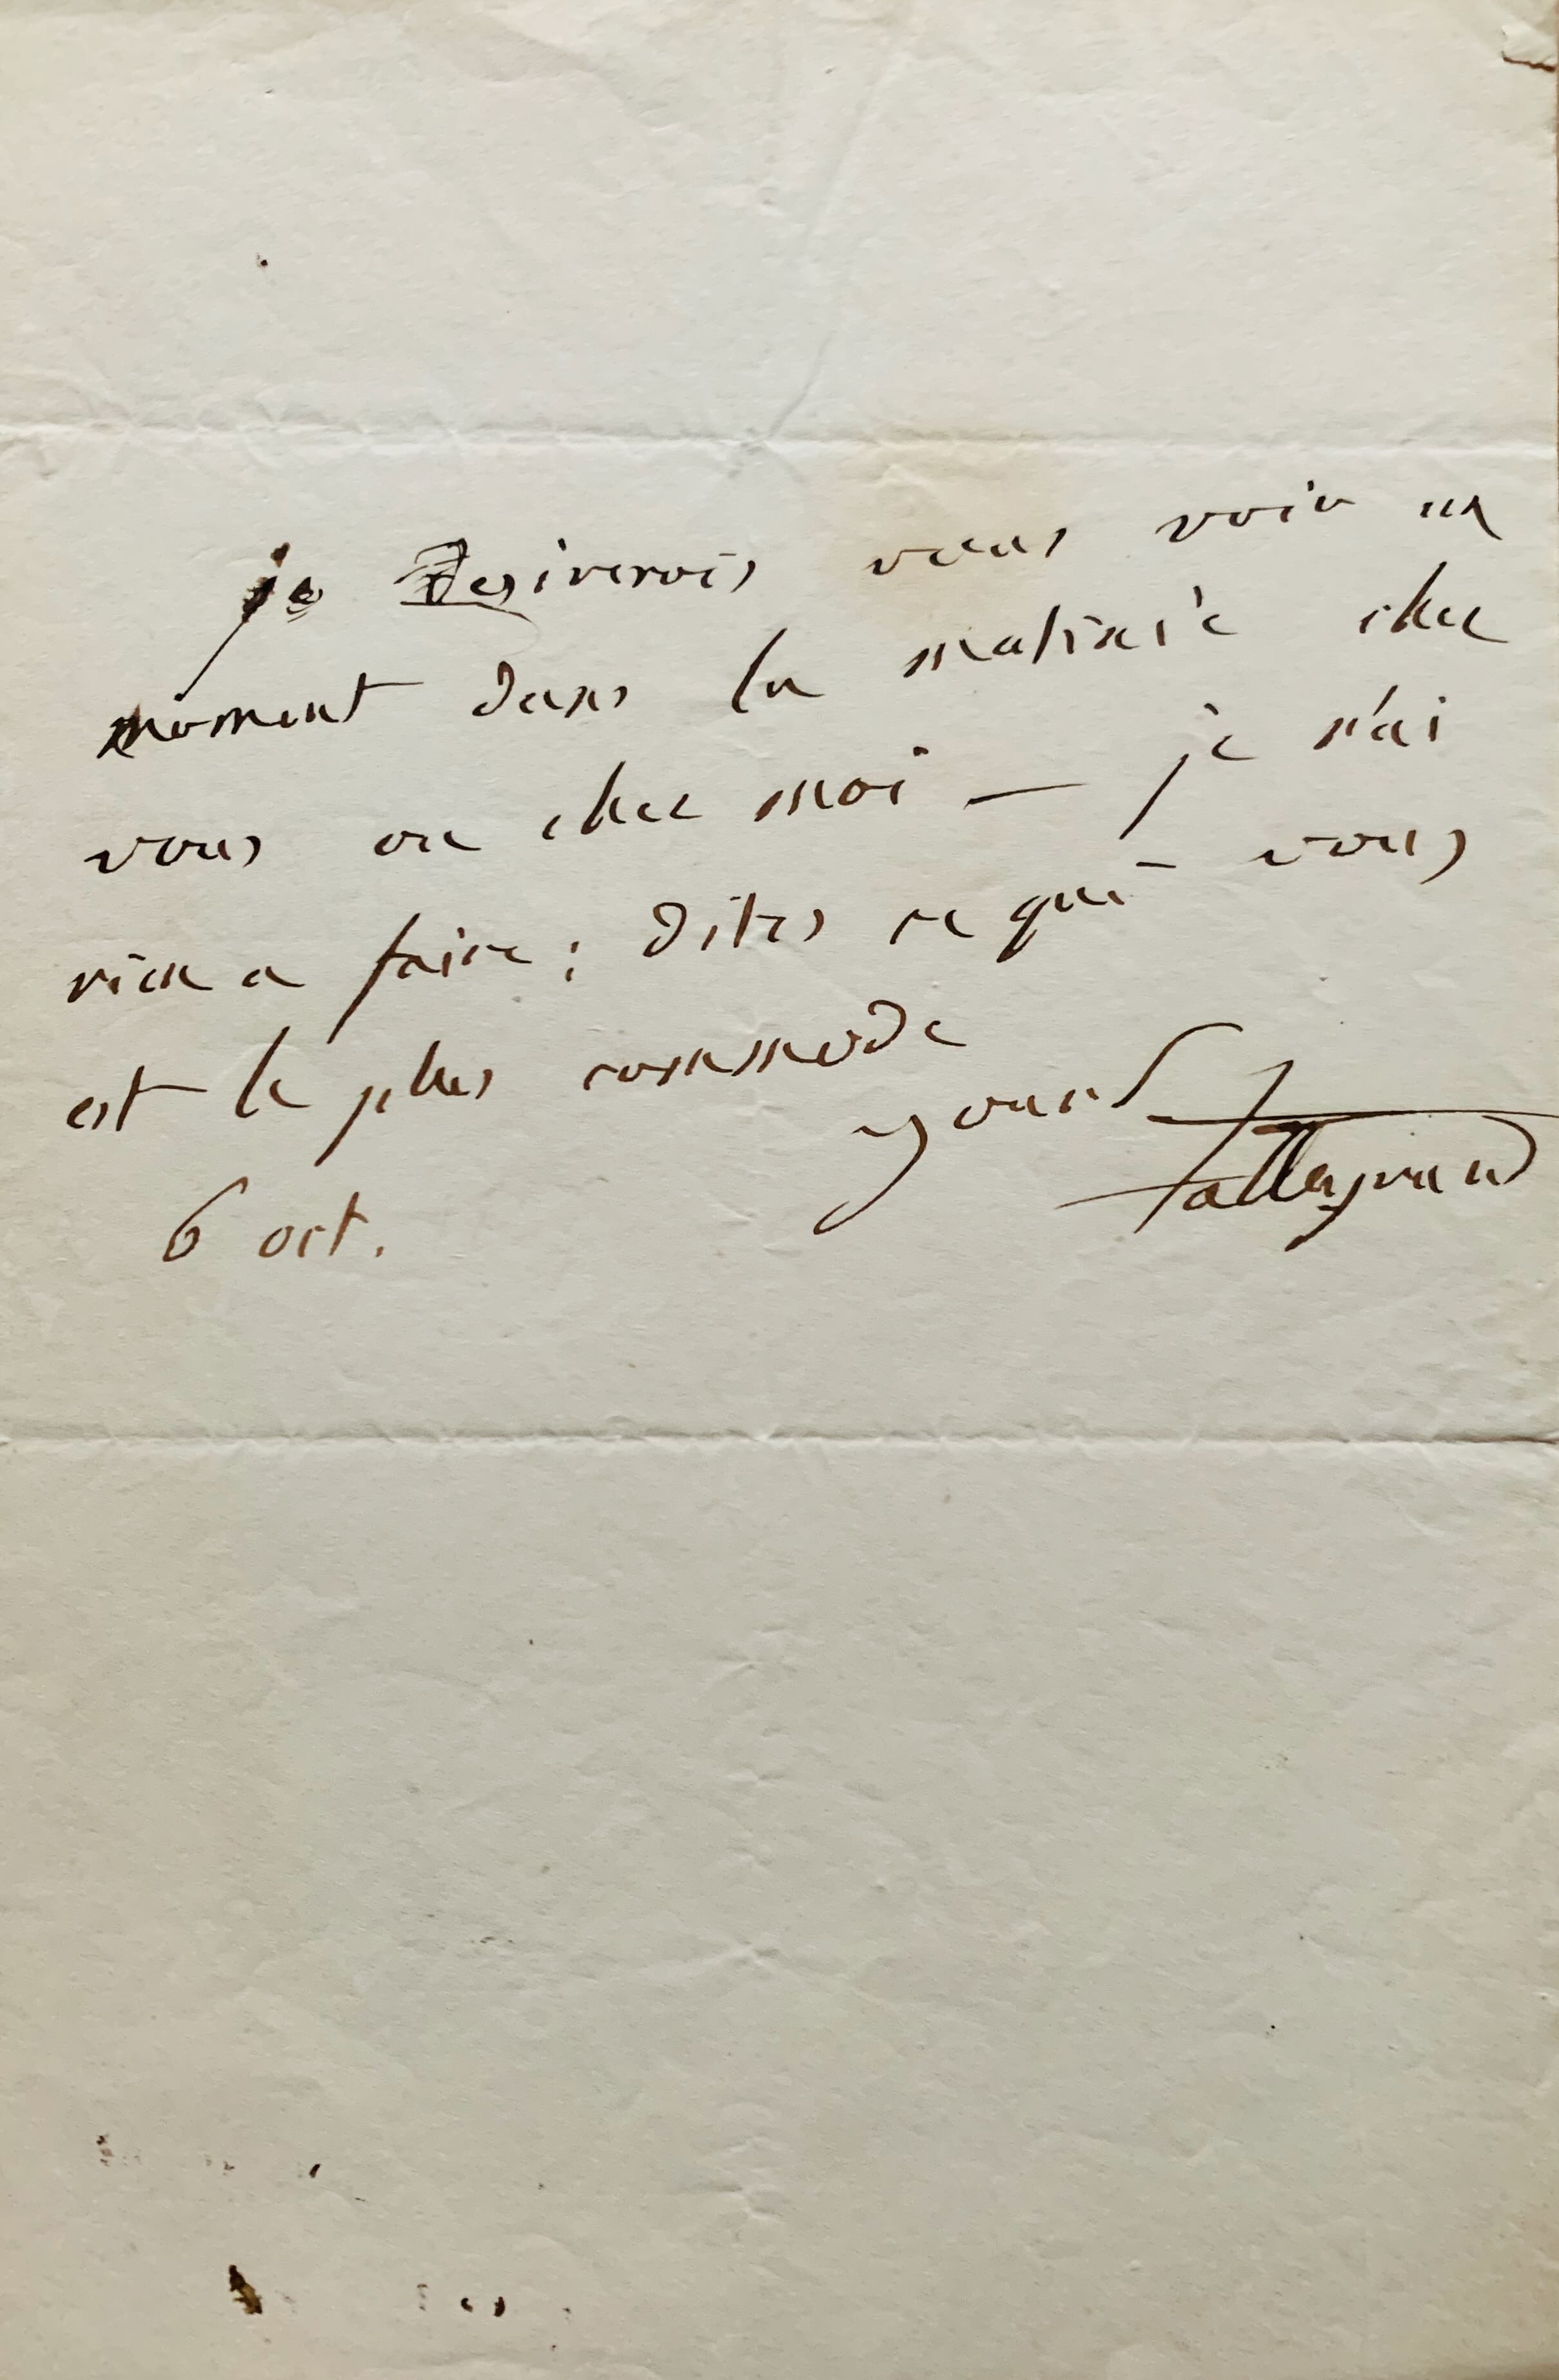 je desirerois vous voir un
moment dans la matinée chez
vous ou chez moi — je n'ai
rien a faire ; dites ce qui vous
est le plus commode
yours
Talleyrand
6 oct.